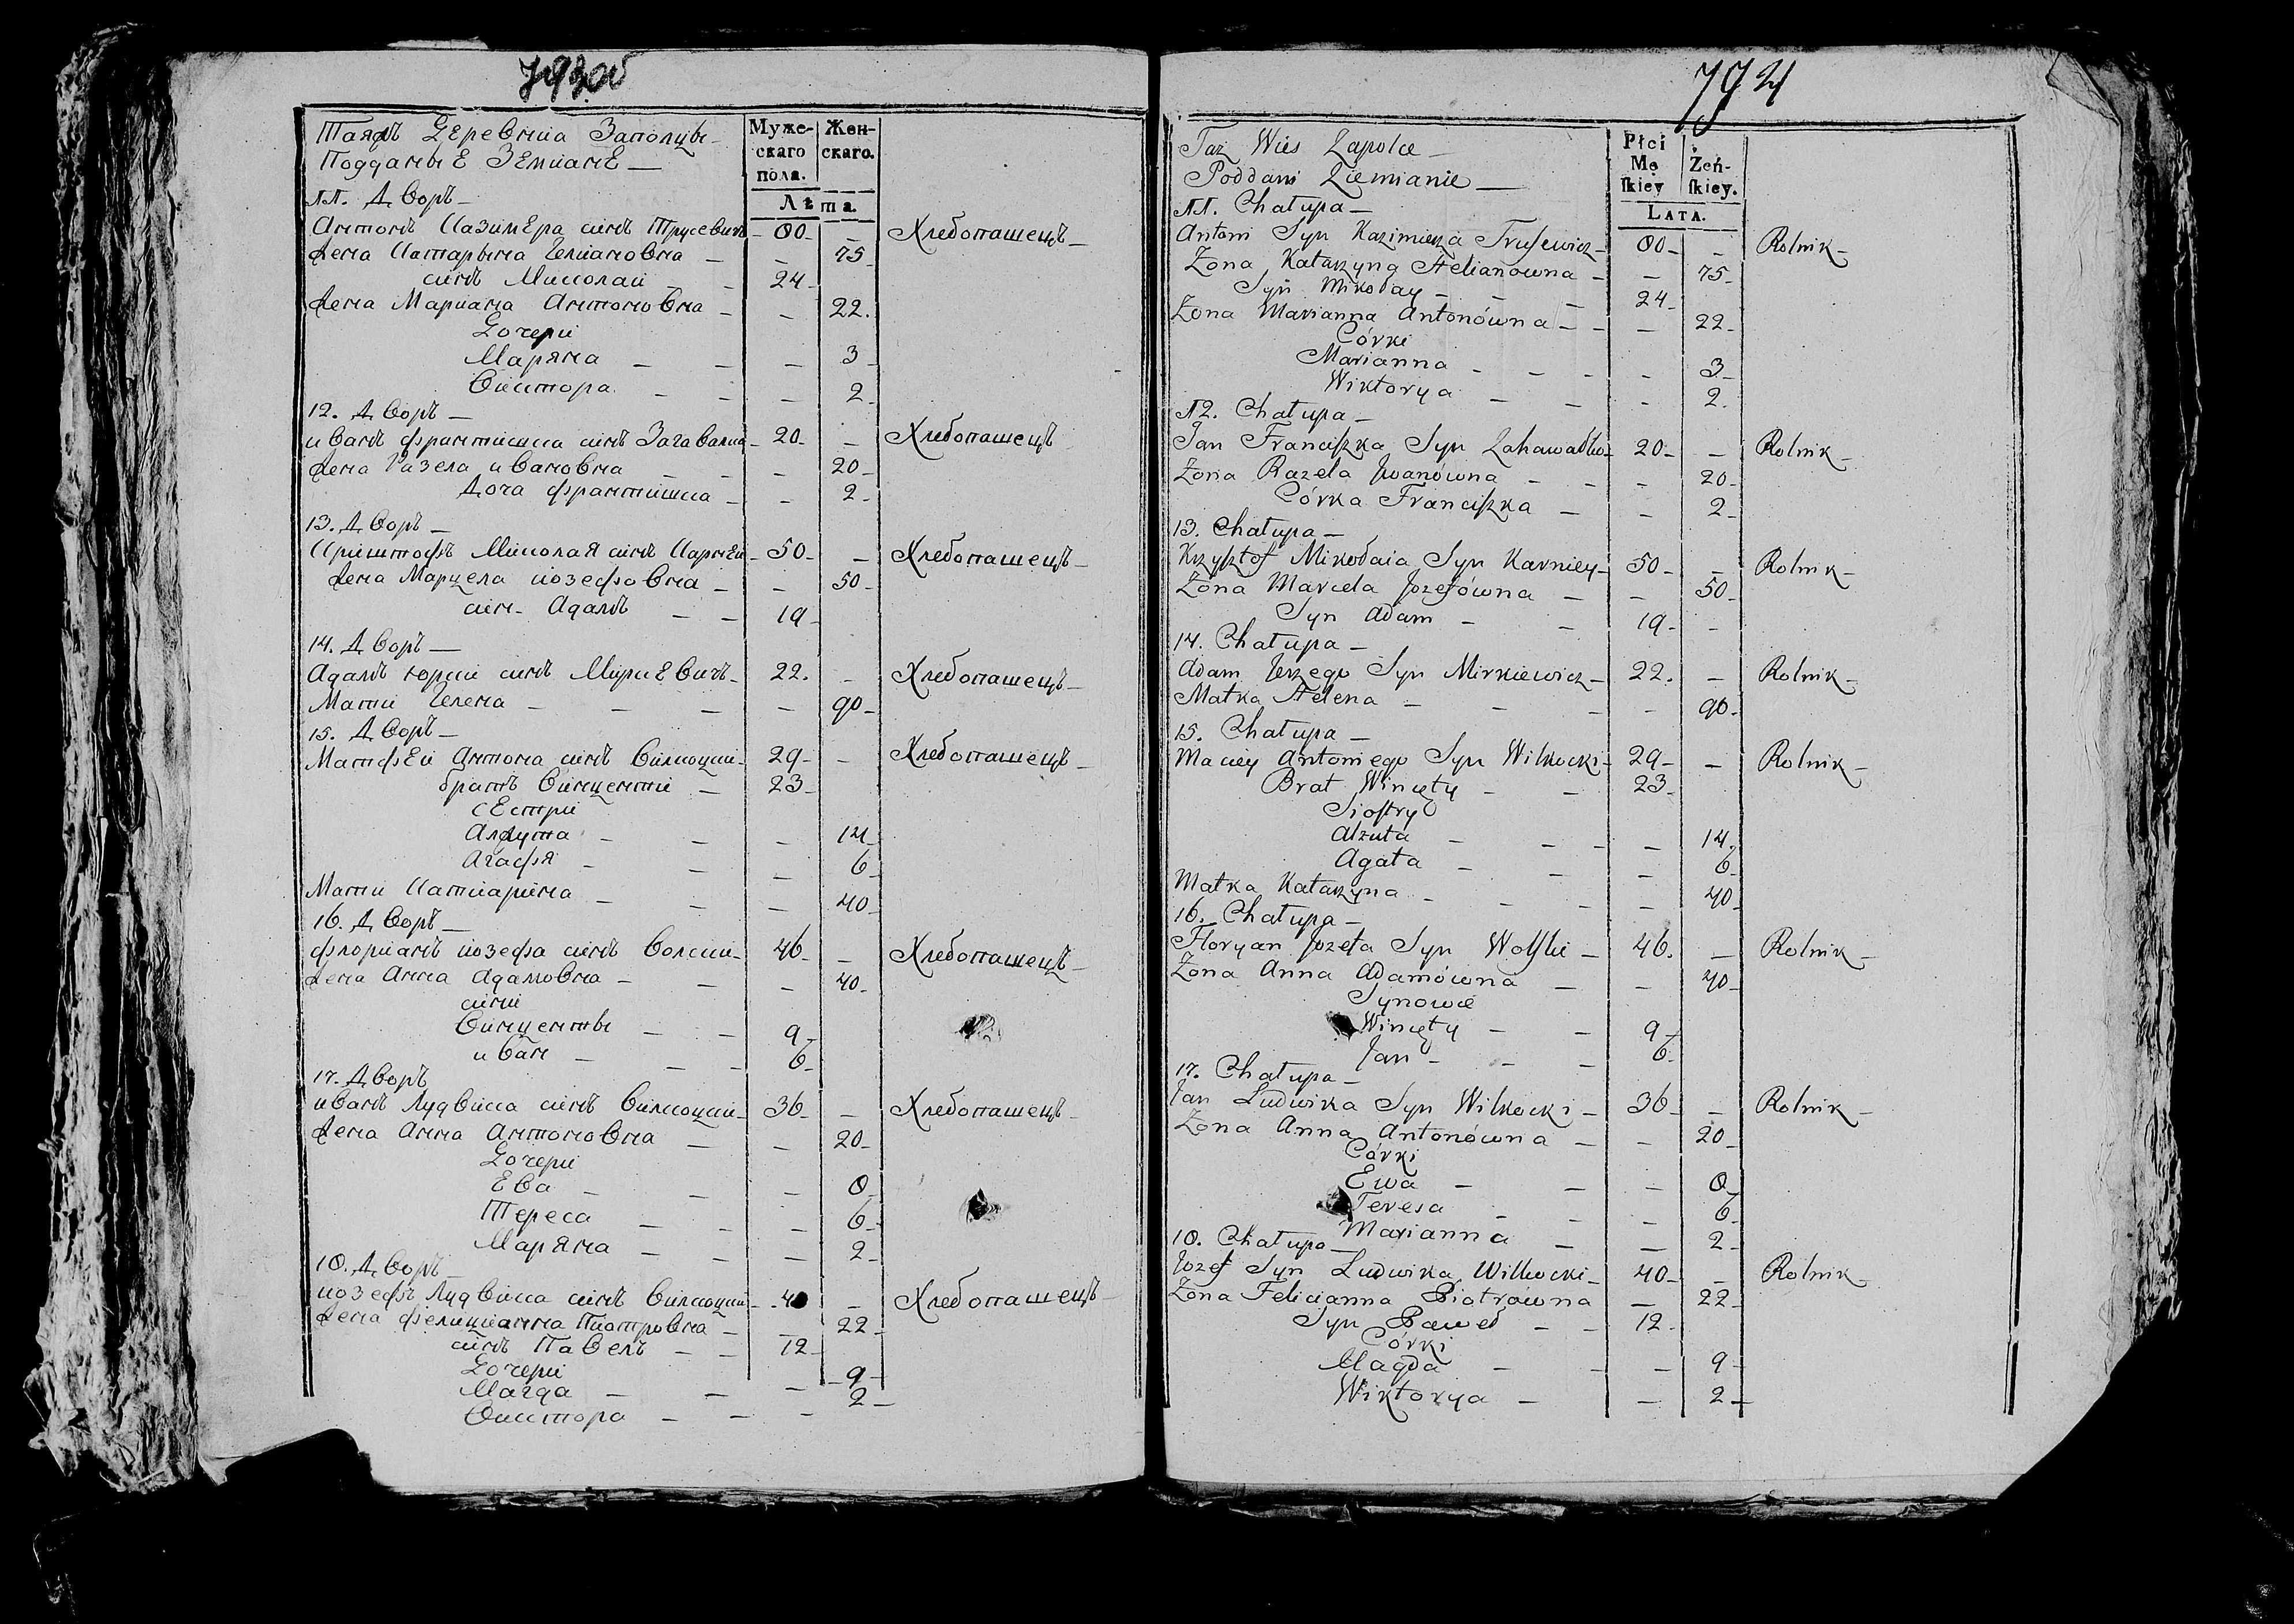 793об
Таяжъ Деревниа Заполцы
Подданые Земиане
Муже-
скаго
пола.
Жен-
скаго.
Лѣта.
11. Дворъ
Антонъ Казимера синъ Трусевичъ - 80 - Хлебопашецъ
Жена Катарына Гелиановна - 75
синъ Миколай 24
Жена Мариана Антоновна - 22.
Дочери
Маряна - 3
Виктора - 2
12. Дворъ
иванъ франтишка синъ - 20 - Хлебопашецъ
Жена Разела ивановна - 20
Доча франтишка - 2
13. Дворъ
Криштофъ Миколая синъ Карней - 50 - Хлебопашецъ
Жена Марцела иозефовна - 50
син Адамъ - 19
14. Дворъ
Адамъ юрии синъ Миркевичъ - 22. - Хлебопашецъ
Мати Гелена - 90
15. Дворъ
Матфей Антона синъ Вилкоцки - 29 - Хлебопашецъ
братъ Винценти - 23
сестри
Алжута - 14
Агафя - 6
Мати Катиарина - 40
16. Дворъ
флорианъ иозефа синъ Волски - 46 - Хлебопашецъ
Жена Анна Адамовна - 40
сини
Винценты - 9
иван - 6
17. Дворъ
иванъ Лудвика синъ Вилкоцки - 36 - Хлебопашецъ
Жена Анна Антоновна - 20
Дочери
Ева - 8
Тереса - 6
Маряна - 2
18. Дворъ
иозефъ Лудвика синъ Вилкоцки - 40 - Хлебопашецъ
Жена фелицианна Пиотровна - 22
синъ Павелъ - 12
Дочери - 9
Магда - 2
Виктора
794
Taż Wieś Zapolce
Poddani Ziemianie
Płci
Mę
ſkiey
Żeń-
ſkiey.
LATA.
11. Chałupa
Antoni Syn Kazimierza Truſewicz - 80 - Rolnik
Zona Katarzyna Helianowna - 75
Syn Mikołay - 24
Zona Marianna Antonówna - 22
Córki
Marianna - 3
Wiktorya - 2
12. Chałupa
Jan Franciſzka Syn - 20 - Rolnik
Zona Razela Jwanówna - 20
Córka Franciſzka - 2
13. Chałupa
Krzyſztof Mikołaia Syn Karniey - 50 - Rolnik
Zona Marcela Jozefówna - 50
Syn Adam - 19 -
14. Chałupa
Adam Jerzego Syn Mirkiewicz - 22. - Rolnik
Matka Helena - 90
15. Chałupa
Maciey Antoniego Syn Wilkocki - 29 - Rolnik
Brat Wincęty - 23
Sioſtry
Alzuta - 14
Agata - 6
Matka Katarzyna - 40
16. Chałupa
Floryan Jozefa Syn Wolſki - 46. - Rolnik
Zona Anna Adamówna - 40
Synowie
Wincęty - 9
Jan - 6
17. Chałupa
Jan Ludwika Syn Wilkocki - 36 - Rolnik
Zona Anna Antonówna - 20
Córki
Ewa - 8
Teresa - 6
Marianna - 2
18. Chałupa
Jozef Syn Ludwika Wilkocki - 40 - Rolnik
Zona Felicianna Piotrowna - 22
Syn Paweł - 12
Córki
Magda - 9
Wiktorya - 2